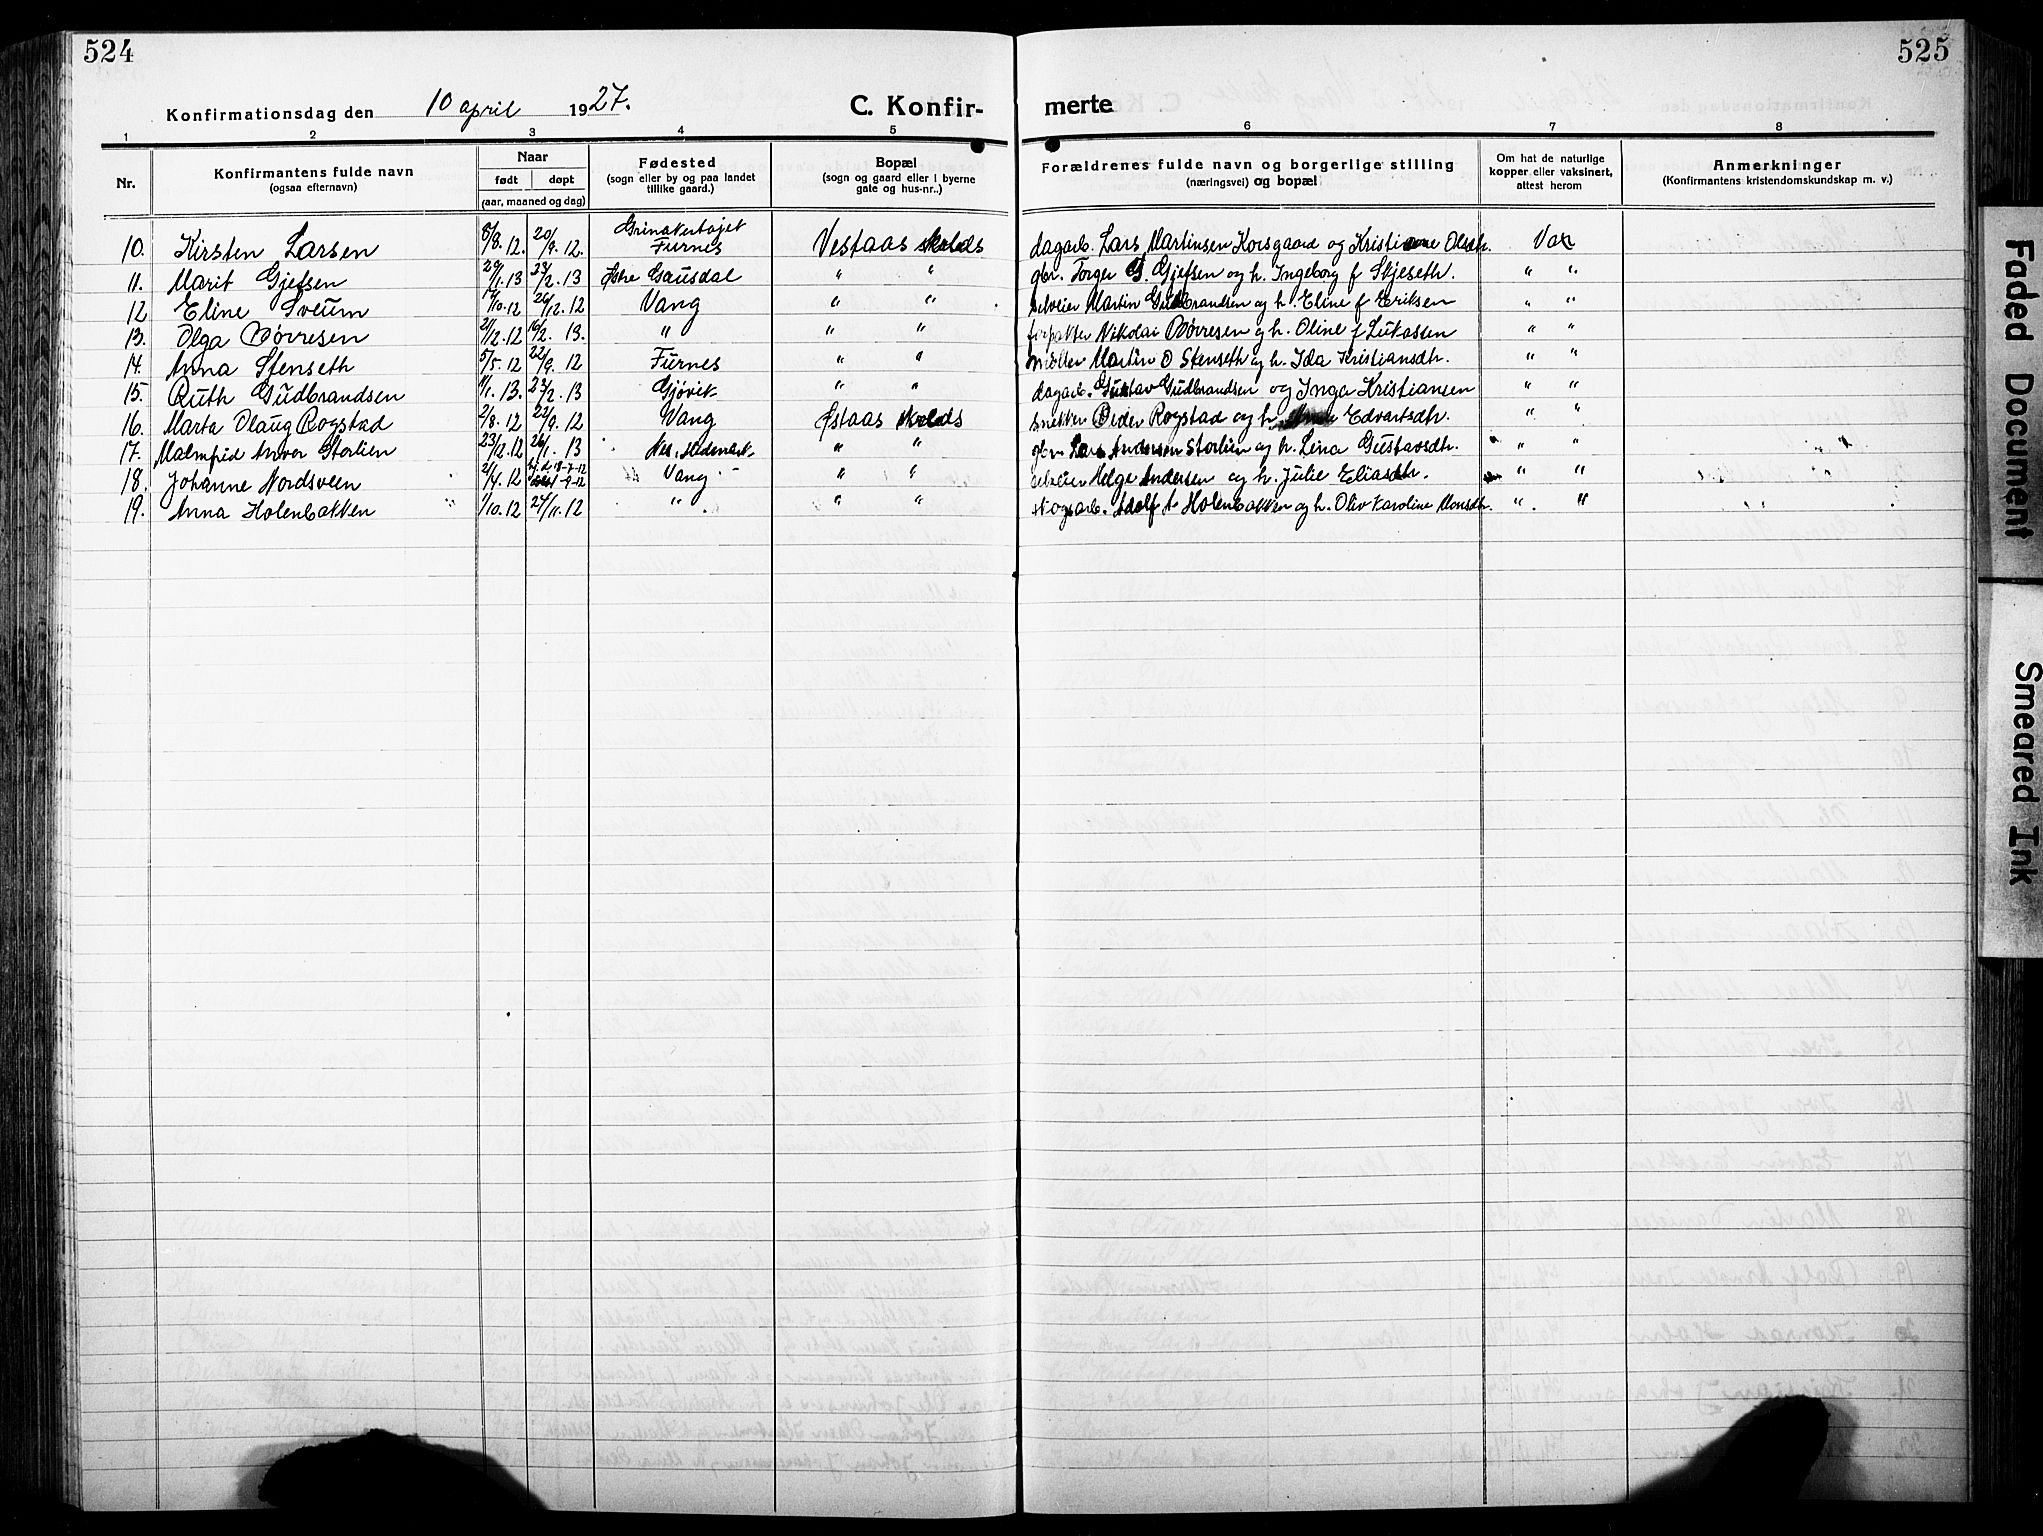 524
525
Konfirmationsdag den 10 april 1927.
C. Konfir-
merte
1 2 3 4 5 6 7 8
Nr.
Konfirmantens fulde navn
(ogsaa efternavn)
Naar
født døpt
(aar, maaned og dag)
Fødested
(sogn eller by og paa landet
tillike gaard.)
Bopæl
(sogn og gaard eller i byerne
gate og hus-nr..)
Forældrenes fulde navn og borgerlige stilling
(næringsvei) og bopæl
Om hat de naturlige
kopper eller vaksinert,
attest herom
Anmerkninger
(Konfirmantens kristendomskundskap m. v.)
10. Kirsten Larsen 5/8. 12. 20/9. 12. Furnes Vestaas skolds dagarb. Lars Martinsen Korsgaard og Kristiane Olsdtr. Vax
11. Marit Gjefsen 29/1. 13 23/2. 13 Østre Gausdal " " gbr. Torger G. Gjefsen og h. Ingeborg f Skjeseth. " "
12 Eline Sveum 17/10. 12 26/12. 12 Vang " " selveier Martin Gudbrandsen og h. Eline f Eriksen " "
13. Olga Børresen 21/12. 12 16/2. 13. " " " forpakter Nikolai Børresen og h. Oline f Lukassen " "
14. Anna Stenseth 5/5. 12 22/9. 12 Furnes " " møller Martin O Stenseth og h. Ida Kristiansdtr. " "
15. Ruth Gudbrandsen 11/1. 13. 23/2. 13 Gjøvik " " dagarb. Gustav Gudbrandsen og Inga Kristiansen " "
16. Marta Olaug Rogstad 2/8. 12 22/9. 12 Vang Østaas skolds snekker Peder Rogstad og h. Edvartsdtr. " "
17. Malmfrid Anvor Storlien 23/12. 12 26/1. 13 Nes, Hedemark. " " gbr. Lars Andersen Storlien og h. Lina Gustavsdtr. " "
18. Johanne Nordsveen 2/4. 12 Vang " " selveier Helge Andersen og h. Julie Eliasdtr. " "
19. Anna Holenbakken 1/10. 12 24/11. 12 " " " skogsarb. Adolf A Holenbakken og h. Oliv Karoline Monsdtr. " "
Faded Document
Smeared Ink